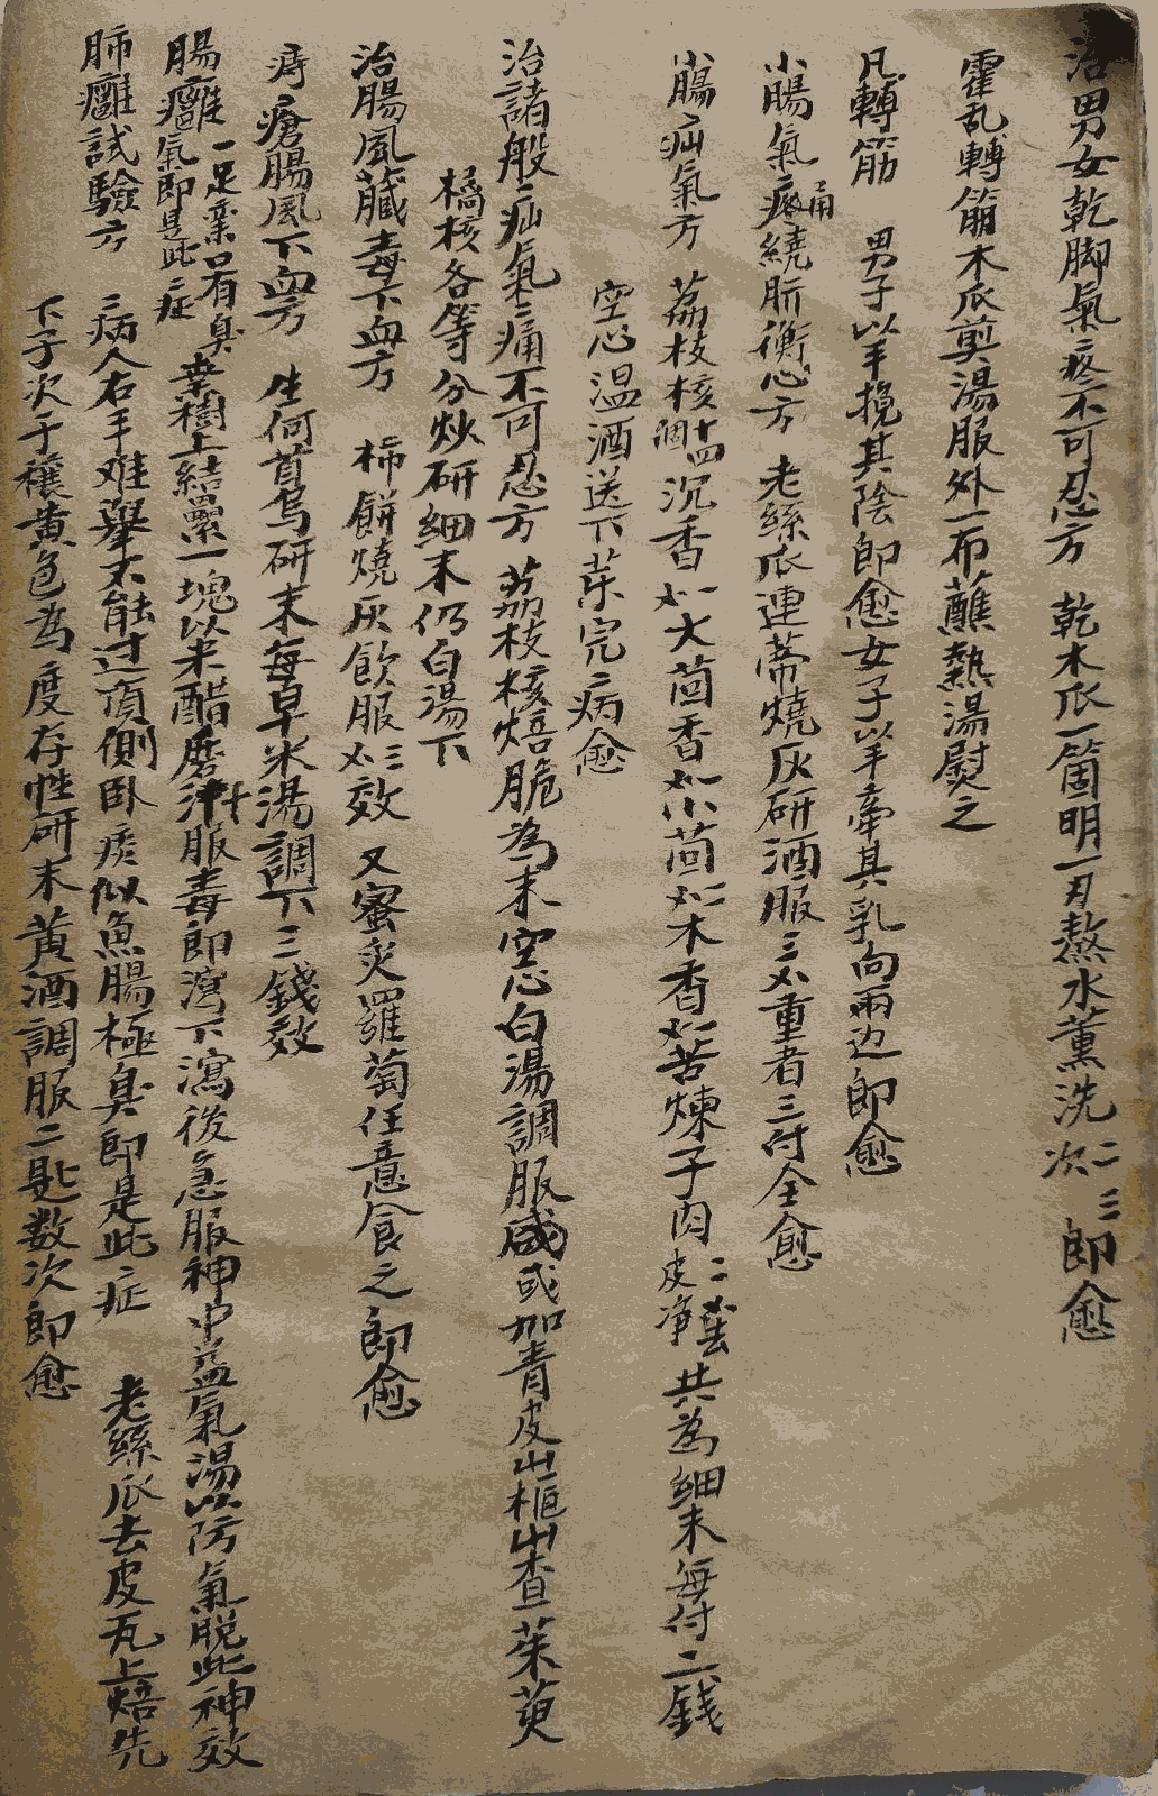 治男女乾脚氣疼不可忍方　乾木瓜一箇明一刃熬水薰洗二三次即愈
霍乱轉筋木瓜煎湯服外一布蘸熱湯熨之
凡轉筋　男子以手挽其陰即愈女子以手牽其乳向兩边即愈
小腸氣疼痛繞脐衝心方　老絲瓜連蒂燒灰研酒服三重者三付全愈
小腸疝氣方　荔枝核十四個沉香大茴香小茴木香苦煉子肉皮净共為細末每付二錢
空心温酒送下菜完病愈
治諸般疝氣痛不可忍方　荔枝核焙脆為末空心白湯調服或加青皮山梔山查茱萸
橘核各等分炒研細末仍白湯下
治腸風臟毒下血方　柿餅燒灰飲服效　又蜜炙羅蔔任意食之即愈
痔瘡腸風下血方　生何首烏研末每早米湯調下三錢效
腸癰一足棄口有臭氣即是此症　棗樹上結累一塊以米醋磨汁服毒即瀉下瀉後急服神中益氣湯以防氣脱此神效
肺癰試驗方　病人右手难舉不能过頂側卧痰似魚腸極臭即是此症　老絲瓜去皮瓦上焙先
下子次于穰黄色為度存性研末黄酒調服二匙数次即愈